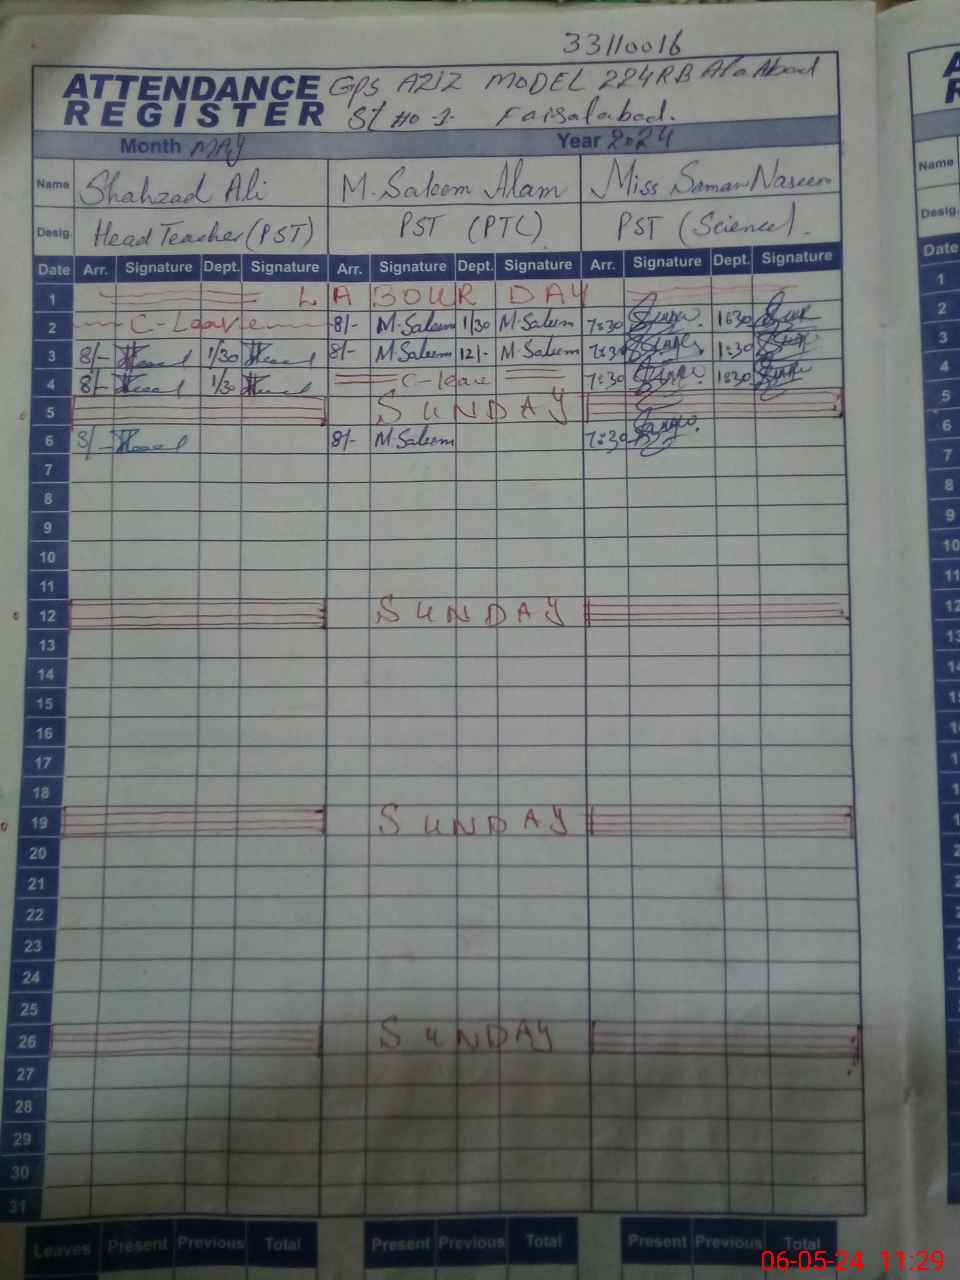 33110016
ATTENDANCE GPS AZIZ MODEL 224RB Ala Abad
REGISTER St No 2 Faisalabad.
Month MAY Year 2024
Name Shahzad Ali M. Saleem Alam Miss Saman Naseem
Desig. Head Teacher (PST) PST (PTC) PST (Science).
Date Arr. Signature Dept. Signature Arr. Signature Dept. Signature Arr. Signature Dept. Signature
1 LABOUR DAY
2 C-Leave 8/- M.Saleem 1/30 M.Saleem 7:30 1:30
3 8/- 1/30 8/- M.Saleem 12/- M.Saleem 7:30 1:30
4 8/- 1/30 C-leave 7:30 1:30
5 SUNDAY
6 8/- 8/- M.Saleem 7:30
7
8
9
10
11
12 SUNDAY
13
14
15
16
17
18
19 SUNDAY
20
21
22
23
24
25
26 SUNDAY
27
28
29
30
31
Leaves Present Previous Total Present Previous Total Present Previous Total
A
R
Name
Desig.
Date
1
2
3
4
5
6
7
8
9
10
11
12
13
06-05-24 11:29